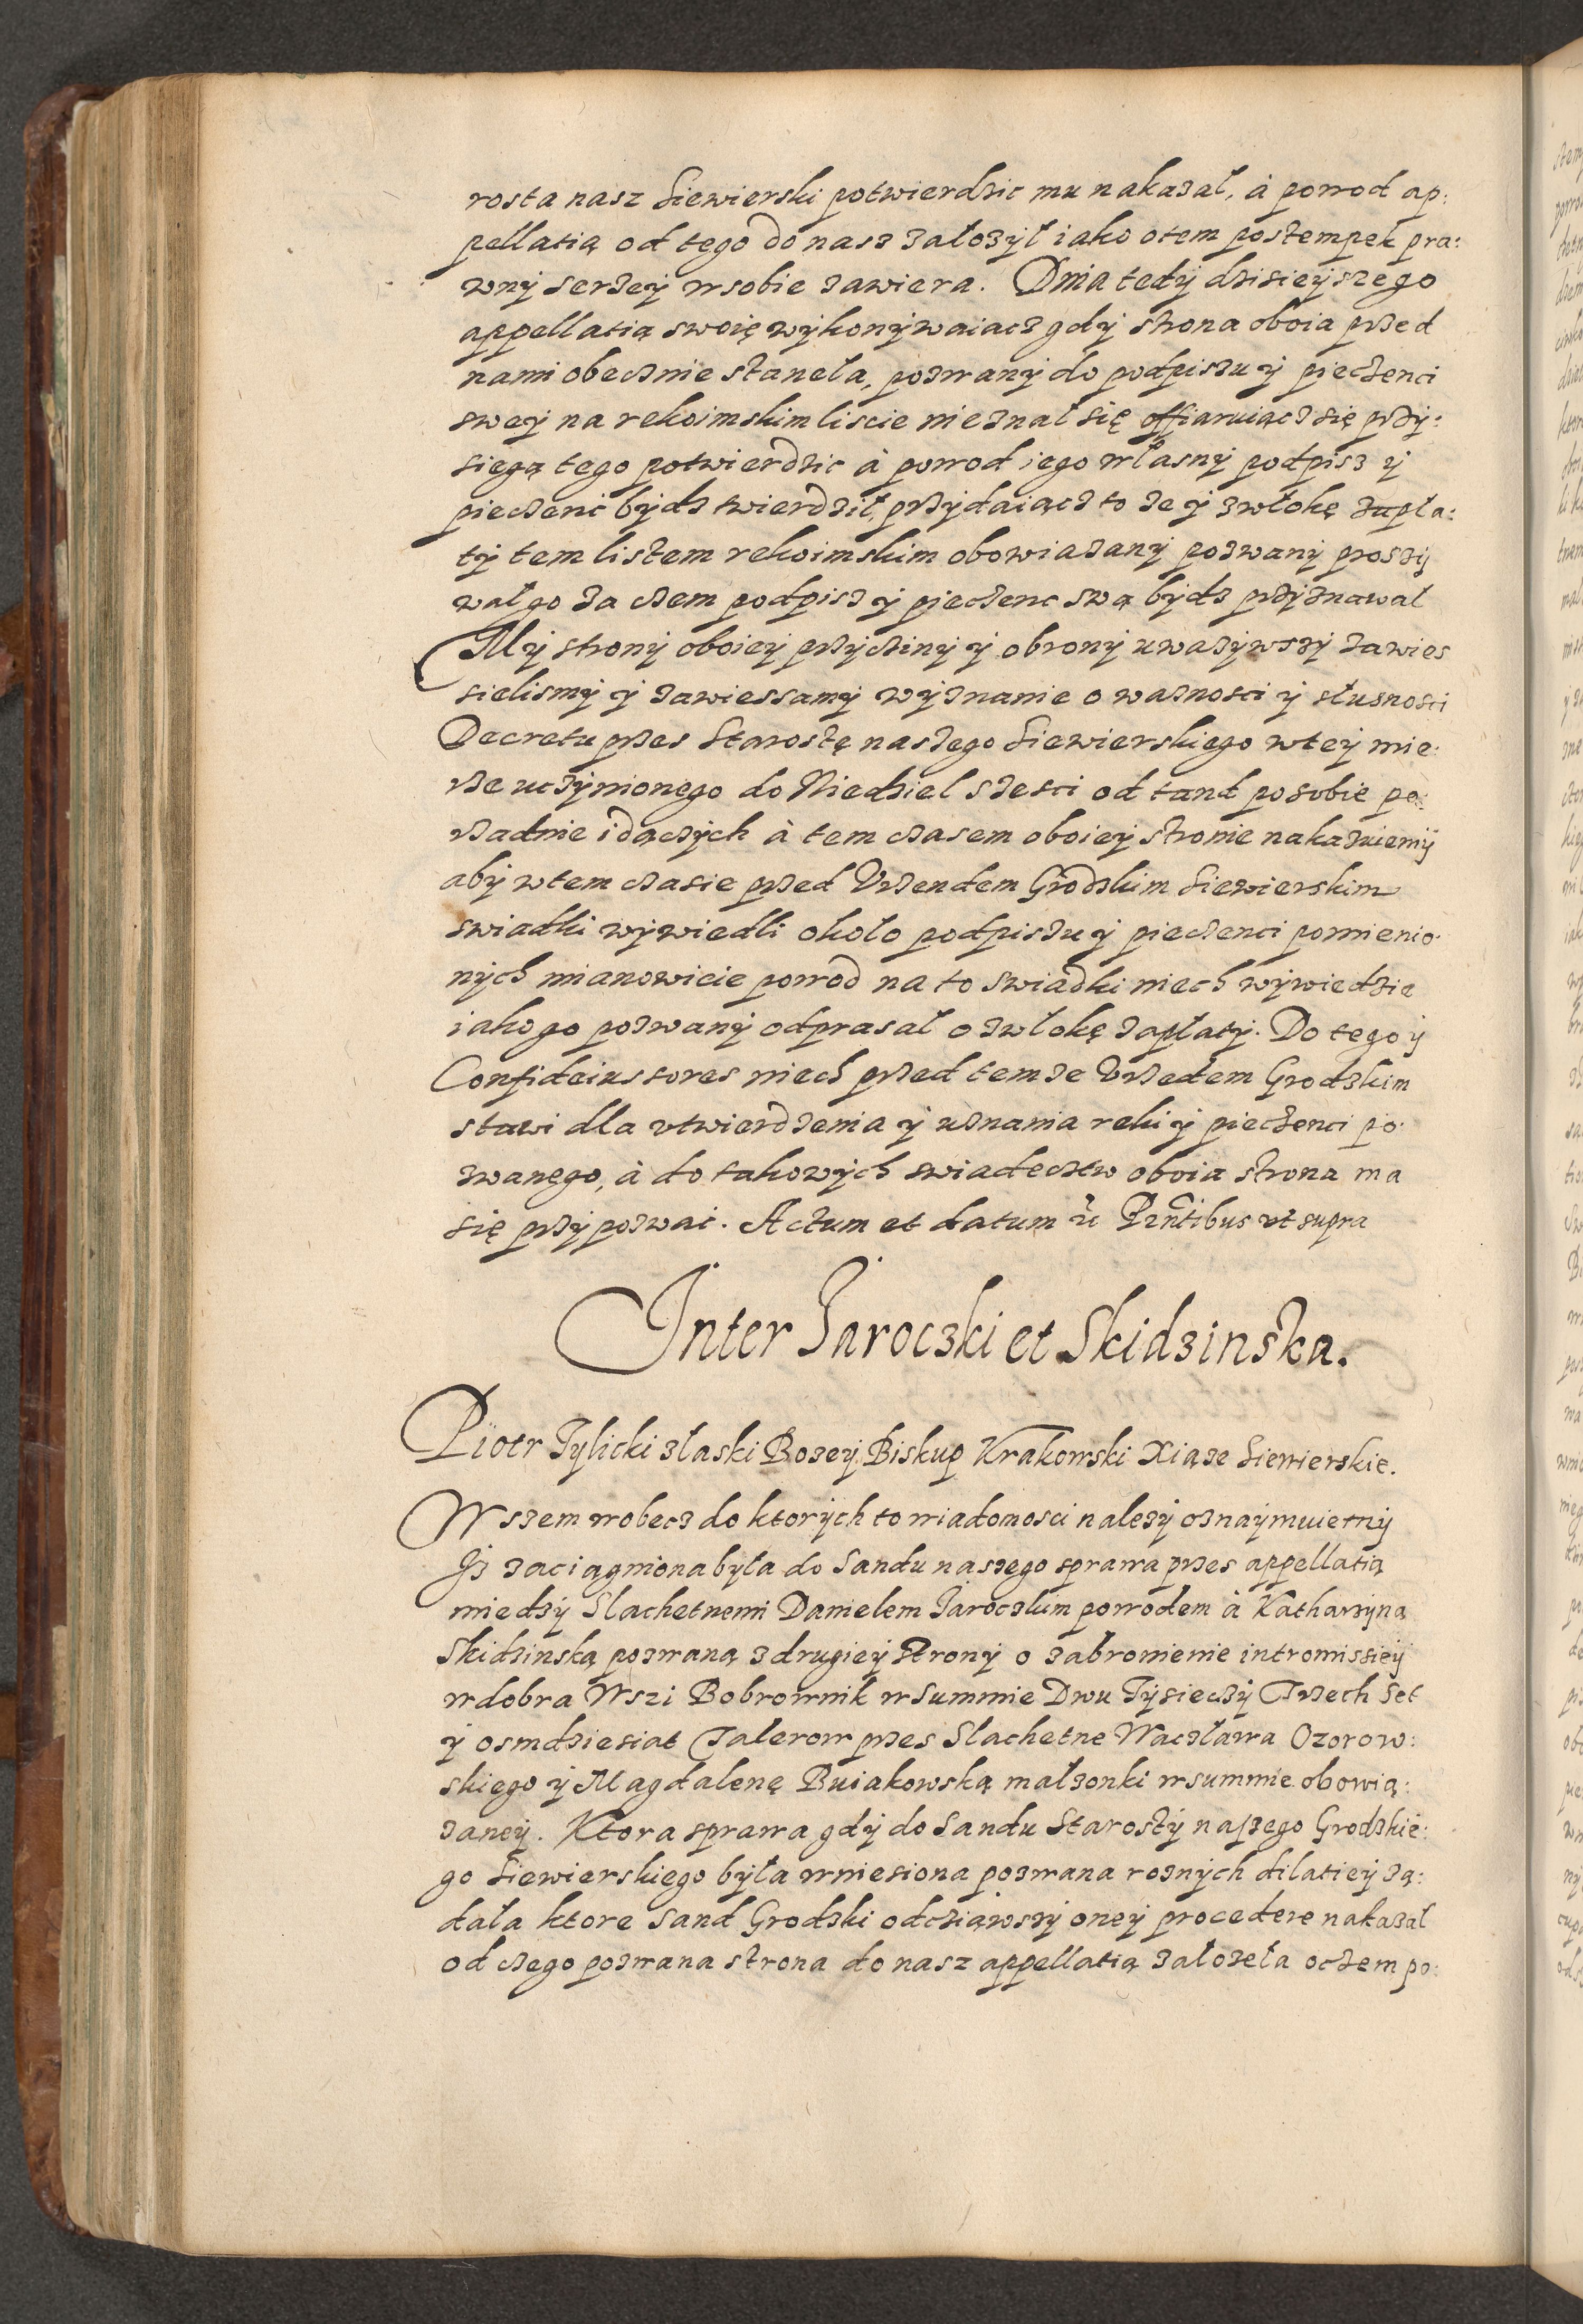 rosta nasz Siewierski potwierdzic mu nakazał, à powod ap:
pellatią od tego do nasz założył iako otem postempek pra:
wnÿ serzeÿ w sobie zawiera. Dnia tedÿ dzisieÿszego
appellatią swoię wÿkonÿwaiacz gdÿ strona oboia przed
nami obecznie stanęła, pozwanÿ do podpiszu ÿ pieczenci
sweÿ na rekoimskim liscie nieznał się offiaruiącz się przÿ:
siegą tego potwierdzic à powod iego własnÿ podpisz ÿ
pieczenc bÿdz twierdził, przÿdaiącz to ze ÿ zwłokę zapła:
tÿ tem listem rekoimskim obowiazanÿ pozwanÿ proszÿ
wał go za czem podpisz ÿ pieczenc swą bÿdz przÿznawał
Mÿ stronÿ oboieÿ przÿczinÿ ÿ obronÿ uwazÿwszÿ zawies
sielismÿ ÿ zawiessamÿ wÿznanie o waznosci ÿ słusznosci
Decretu przes Starostę naszego Siewierskiego wteÿ mie:
rze uczÿnionego do Niedziel szesci od tand posobie po:
rzadnie idączÿch à tem czasem oboieÿ stronie nakazuiemÿ
abÿ wtem czasie przed Urzendem Grodzkim Siewierskim
swiadki wÿwiedli około podpiszu ÿ pieczenci pomienio:
nÿch mianowicie powod na to swiadki niech wÿwiedzie
iako go pozwanÿ odprasał o zwłokę zapłatÿ. Do tego ÿ
Confideiussores niech przed temze Urzedem Grodzkim
stawi dla utwierdzenia ÿ uznania reki ÿ pieczenci po:
zwanego, à do takowÿch swiadecztw oboia strona ma
się przÿpozwac. Actum et datum ut Pr̃ntibus ut supra
Inter Jaroczki et Skidzinska.
Piotr Tylicki złaski Bozeÿ Biskup Krakowski Xiąze Siewierskie.
Wszem wobecz do ktorÿch to wiadomosci nalezÿ oznaÿmuiemÿ
Jz zaciągniona bÿła do Sandu naszego sprawa przes appellatią
miedzÿ Slachetnemi Danielem Jaroczkim powodem à Katharzÿną
Skidzinską pozwaną z drugieÿ stronÿ o zabronienie intromissieÿ
w dobra Wszi Bobrownik w Summie Dwu Tÿsieczÿ Trzech Set
ÿ osmdziesiat Talerow przes Slachetne Waczława Ozorow:
skiego ÿ Magdalenę Buiakowską małzonki w summie obowią:
zaneÿ. Ktora sprawa gdÿ do Sandu Starostÿ naszego Grodzkie:
go Siewierskiego bÿła wniesiona pozwana roznÿch dilatieÿ zą:
dała ktore Sand Grodzki odcziąwszÿ oneÿ procedere nakazał
od czego pozwana strona do nasz appellatią założeła oczem po: